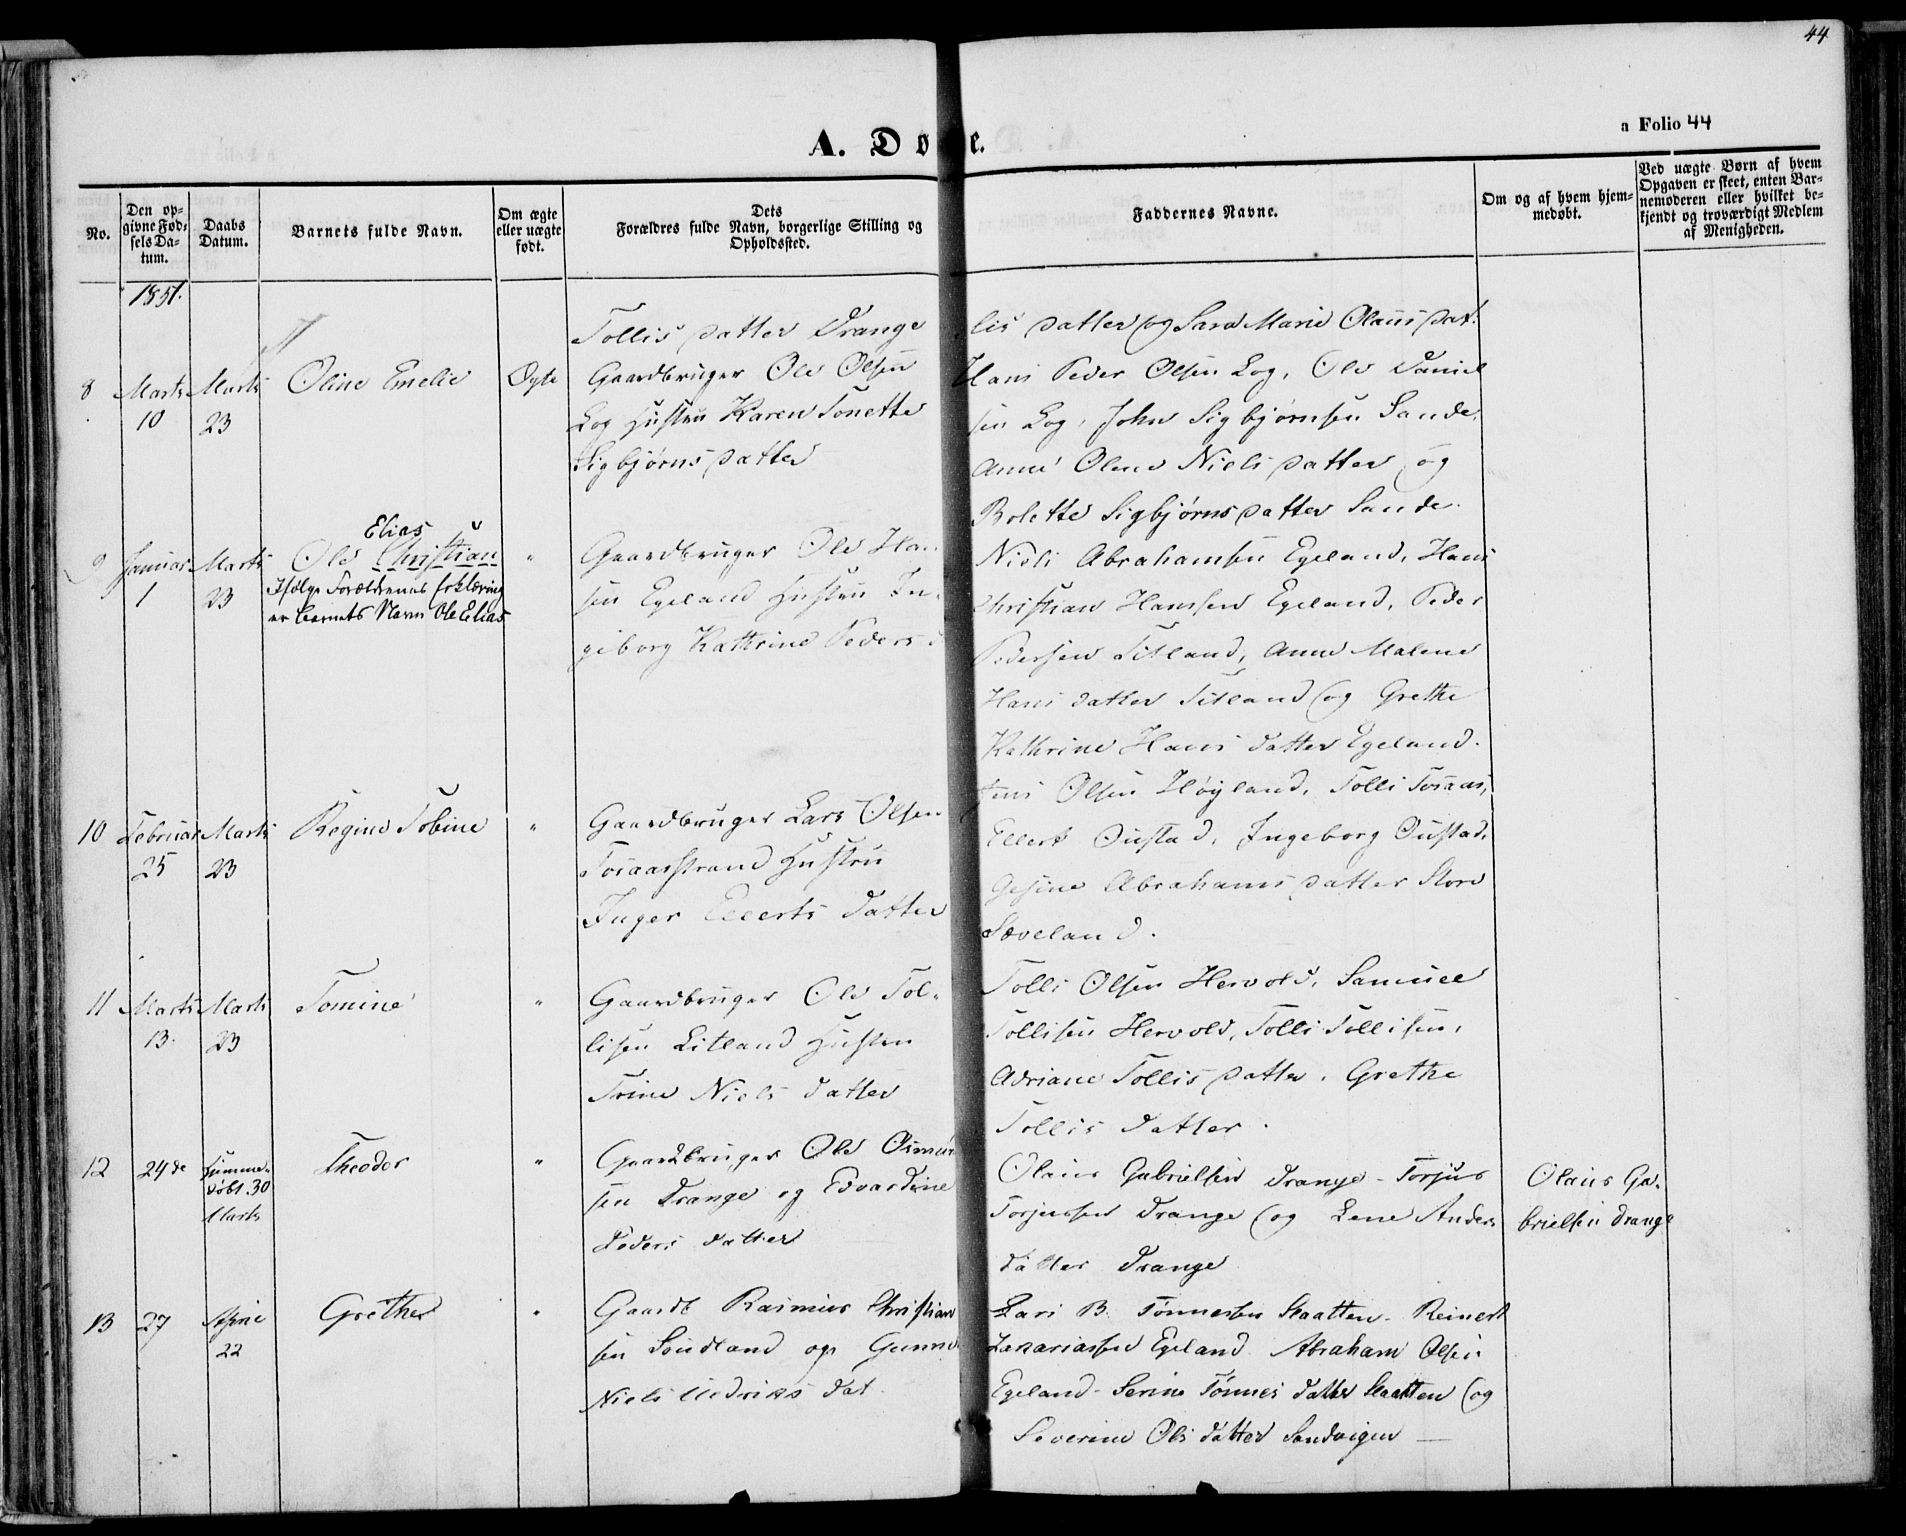 44
a Folio 44
A. D e.
No.
Den op-
givne Fød-
sels Da-
tum.
Daabs
Datum.
Barnets fulde Navn.
Om ægte
eller uægte
født.
Dets
Forældres fulde Navn, borgerlige Stilling og
Opholdssted.
Faddernes Navne.
Om og af hvem hjem-
medøbt.
Ved uægte Børn af hvem
Opgaven er skeet, enten Bar-
nemoderen eller hvilket be-
kjendt og troværdigt Medlem
af Menigheden.
1851.
Tollis datter Drange
lis datter og Sara Marie Olaus dat.
8 Marts Marts Oline Emelie Ægte Gaardbruger Ole Olsen
10 23 Log Hustru Karen Tonette
Sigbjørns datter
Hans Peder Olsen Log, Ole Daniel
sen Log, John Sigbjørnsen Sande,
Anne Olene Niels datter og
Bolette Sigbjørns datter Sande.
Elias
9 Januar Marts Ole Christian " Gaardbruger Ole Han
1 23 Ifølge Forældrenes forklaring sen Egeland Hustru In-
er barnets Navn Ole Elias
geborg Kathrine Peders d
Niels Abrahamsen Egeland, Hans
Christian Hansen Egeland, Peder
Pedersen Titland, Anne Malene
Hans datter Titland og Grethe
Kathrine Hans datter Egeland.
10 Februar Marts Regine Tobine " Gaardbruger Lars Olsen
25 23 Tosaasstrand Hustru
Inger Ellerts datter
Jens Olsen Høyland, Tolli Tosaas,
Ellert Oustad, Ingeborg Oustad,
Gesine Abrahams datter Store
Sæveland.
11 Marts Marts Tomine " Gaardbruger Ole Tol-
13. 23 lisen Litland Hustru
Trine Niels datter
Tolli Olsen Hervold, Samuel
Tollisen Hervold, Tolli Tollisen,
Adriane Tollis datter, Grethe
Tollis datter.
12 24de Hjemme- Theodor " Gaardbruger Ole Osmun
døbt 30 sen Drange og Edvardine
Marts Peders datter
Olaus Gabrielsen Drange - Torjus
Torjussen Drange og Lene Anders
datter Drange
Olaus Ga-
brielsen Drange
13 27 April Grethe " Gaardb Rasmus Christian
22 sen Soudland og Gunne
Niels dat
Lars B. Tønnessen Staatten - Reinert
Zakariassen Egeland Abraham Olsen
Egeland - Serine Tønnes datter Staatten og
Severine Ols datter Sandvigen —